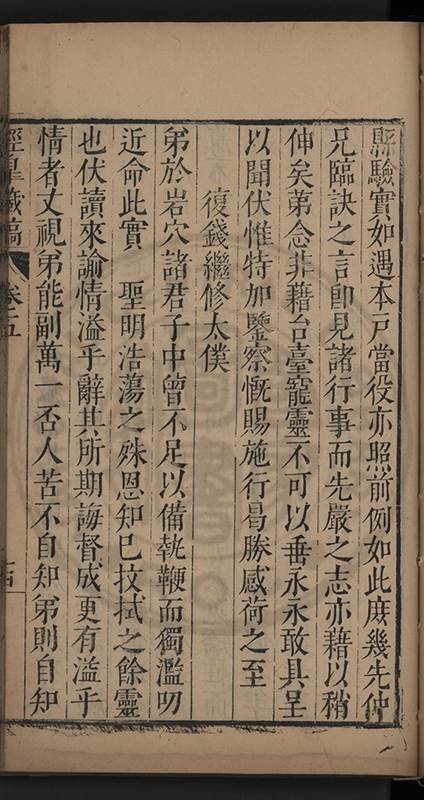 縣驗實如遇本戸當役亦照前例如此庶幾先仲
兄臨訣之言卽見諸行事而先嚴之志亦藉以稍
伸矣弟念非藉台臺寵靈不可以垂永永敢具呈
以聞伏惟特加鑒察慨賜施行曷勝感荷之至
復錢繼修太僕
弟於岩穴諸君子中曾不足以備執鞭而獨濫叨
近命此實 聖明浩蕩之殊恩知已抆拭之餘靈
也伏讀來諭情溢乎辭其所期誨督成更有溢乎
情者丈視弟能副萬一否人苦不自知弟則自知
涇臯藏稿 卷之五 十四